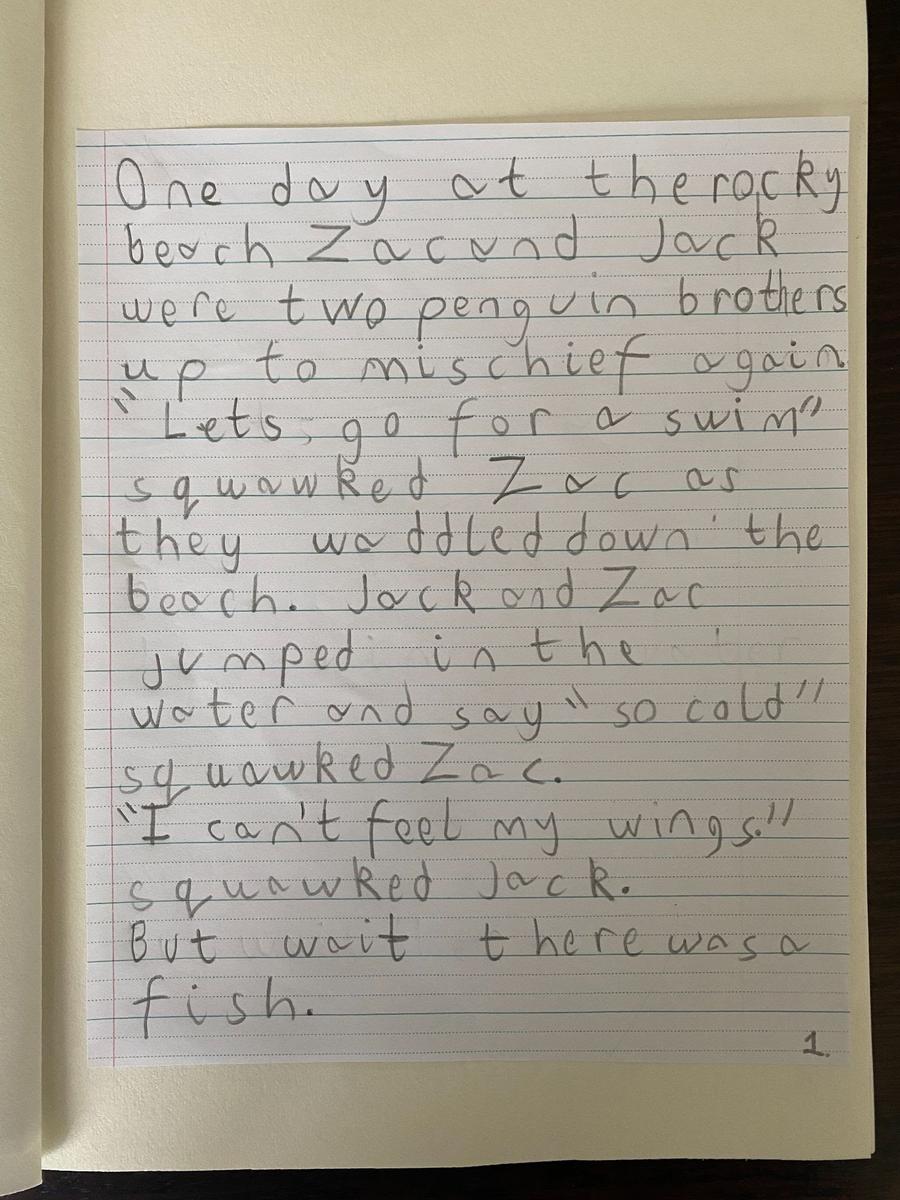 One day at the rocky
beach Zac and Jack
were two penguin brothers
up to mischief again
"Lets go for a swim"
squawked Zac as
they waddled down the
beach. Jack and Zac
jumped in the
water and say "so cold"
squawked Zac.
"I can't feel my wings."
squawked Jack.
But wait there was a
fish.
1.